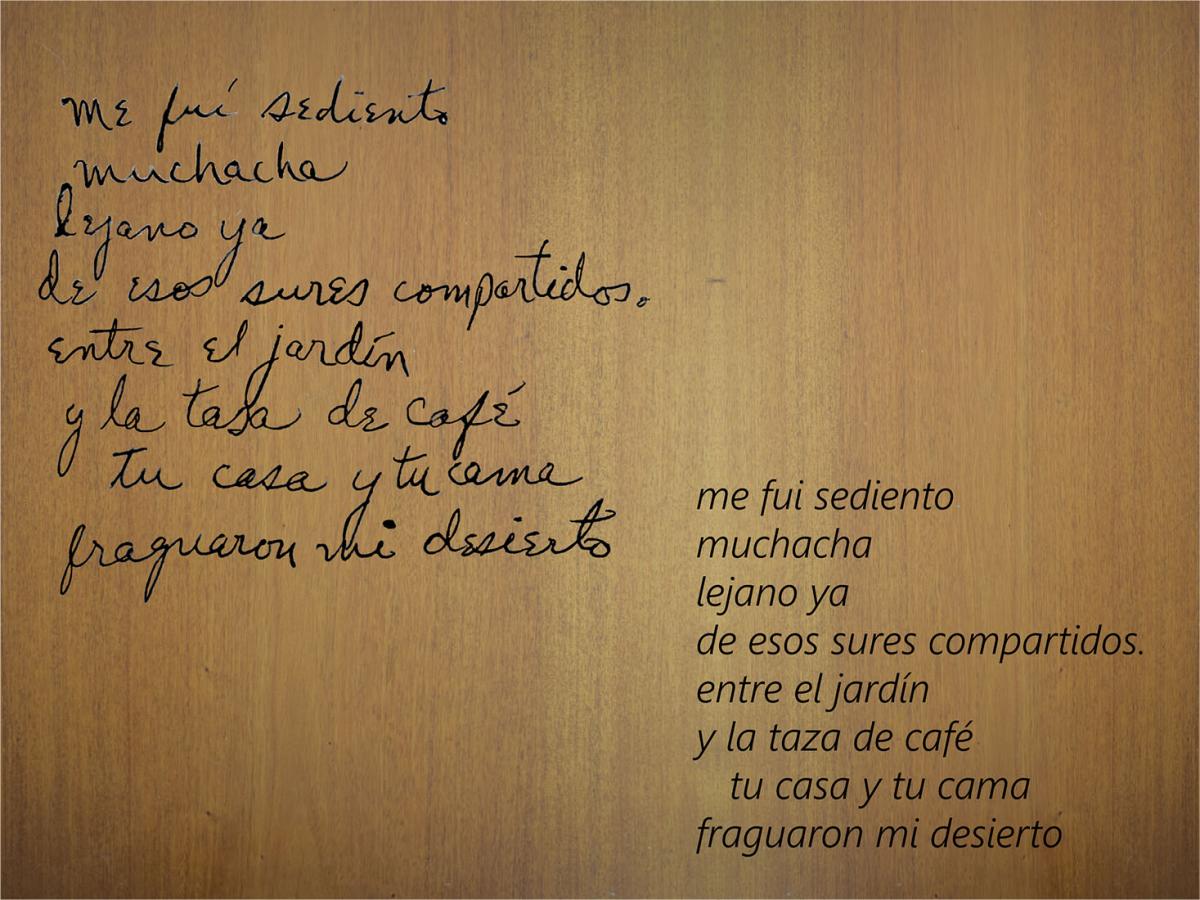 me fuí sediento
muchacha
lejano ya
de esos sures compartidos.
entre el jardín
y la tasa de café
tu casa y tu cama
fraguaron mi desierto
me fui sediento
muchacha
lejano ya
de esos sures compartidos.
entre el jardín
y la taza de café
tu casa y tu cama
fraguaron mi desierto